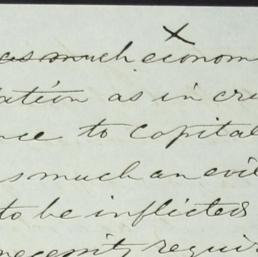 as much econom
lation as in cru
nce to Capital
s much an evil
to be inflicted
necessity requir